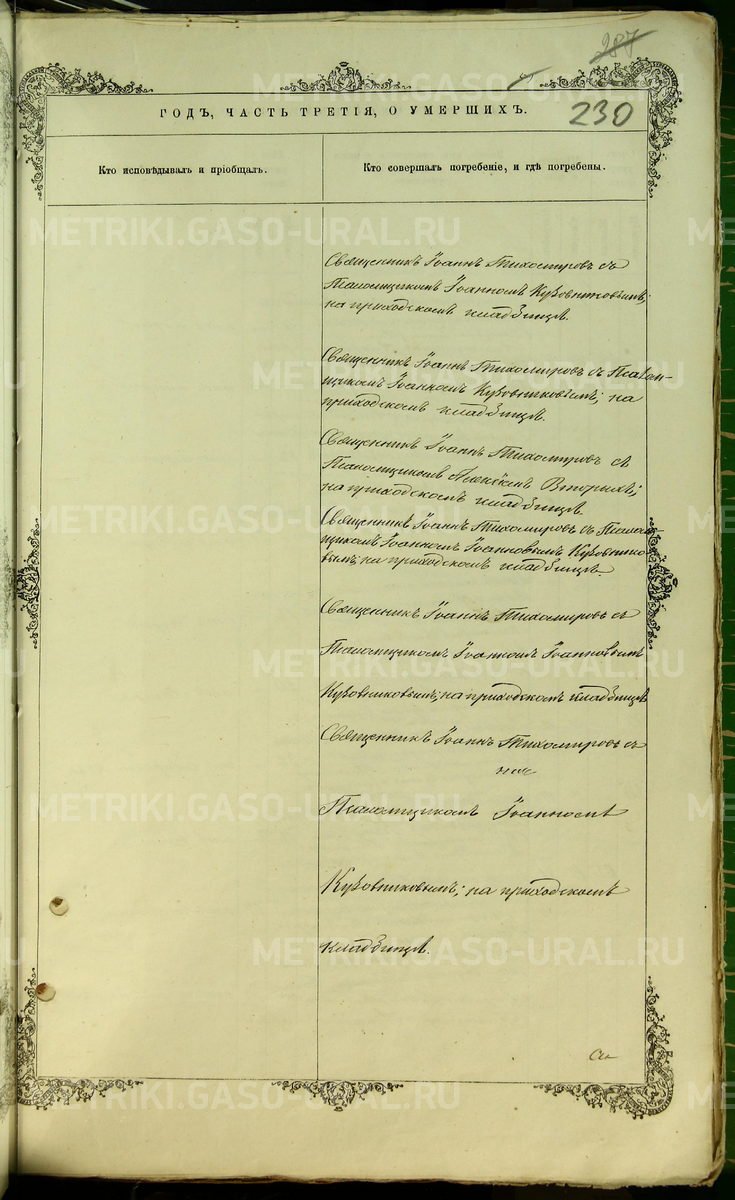 287
230
ГОДЪ, ЧАСТЬ ТРЕТІЯ, О УМЕРШИХЪ.
Кто исповѣдывалъ и пріобщалъ.
Кто совершалъ погребеніе, и гдѣ погребены.
Священникъ Іоаннъ Тихомировъ съ
Псаломщикомъ Іоанномъ Кузовниковымъ;
на приходскомъ кладбищѣ.
Священникъ Іоаннъ Тихомировъ съ Псалом-
щикомъ Іоанномъ Кузовниковымъ; на
приходскомъ кладбищѣ.
Священникъ Іоаннъ Тихомировъ съ
Псаломщикомъ Вторыхъ;
на приходскомъ кладбищѣ
Священникъ Іоаннъ Тихомировъ съ Псалом-
щикомъ Іоанномъ Іоанновымъ Кузовнико-
вымъ; на приходскомъ кладбищѣ.
Священникъ Іоаннъ Тихомировъ съ
Псаломщикомъ Іоанномъ Іоанновымъ
Кузовниковымъ; на приходскомъ кладбищѣ
Священникъ Іоаннъ Тихомировъ съ
Псаломщикомъ Іоанномъ
Кузовниковымъ; на приходскомъ
кладбищѣ.
METRIKI.GASO-URAL.RU